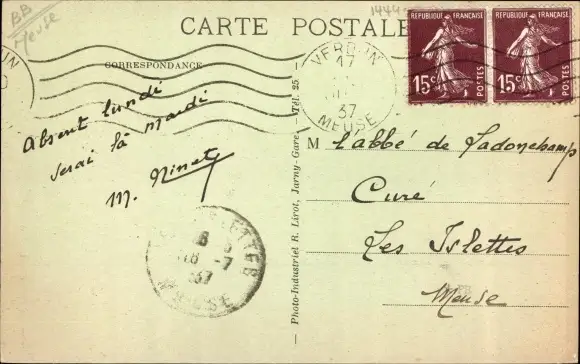 BB
Meuse
1444
CARTE POSTALE
CORRESPONDANCE
VERDUN
17
37
MEUSE
REPUBLIQUE FRANÇAISE
15c
POSTES
REPUBLIQUE FRANÇAISE
15c
POSTES
Absent lundi
serai là mardi
M. Ninet
LES ISLETTES
18 -7
37
MEUSE
Photo-Industriel R. Lirot, Jarny-Gare. — Tél. 25
M l'abbé de Ladonchamp
Curé
Les Islettes
Meuse